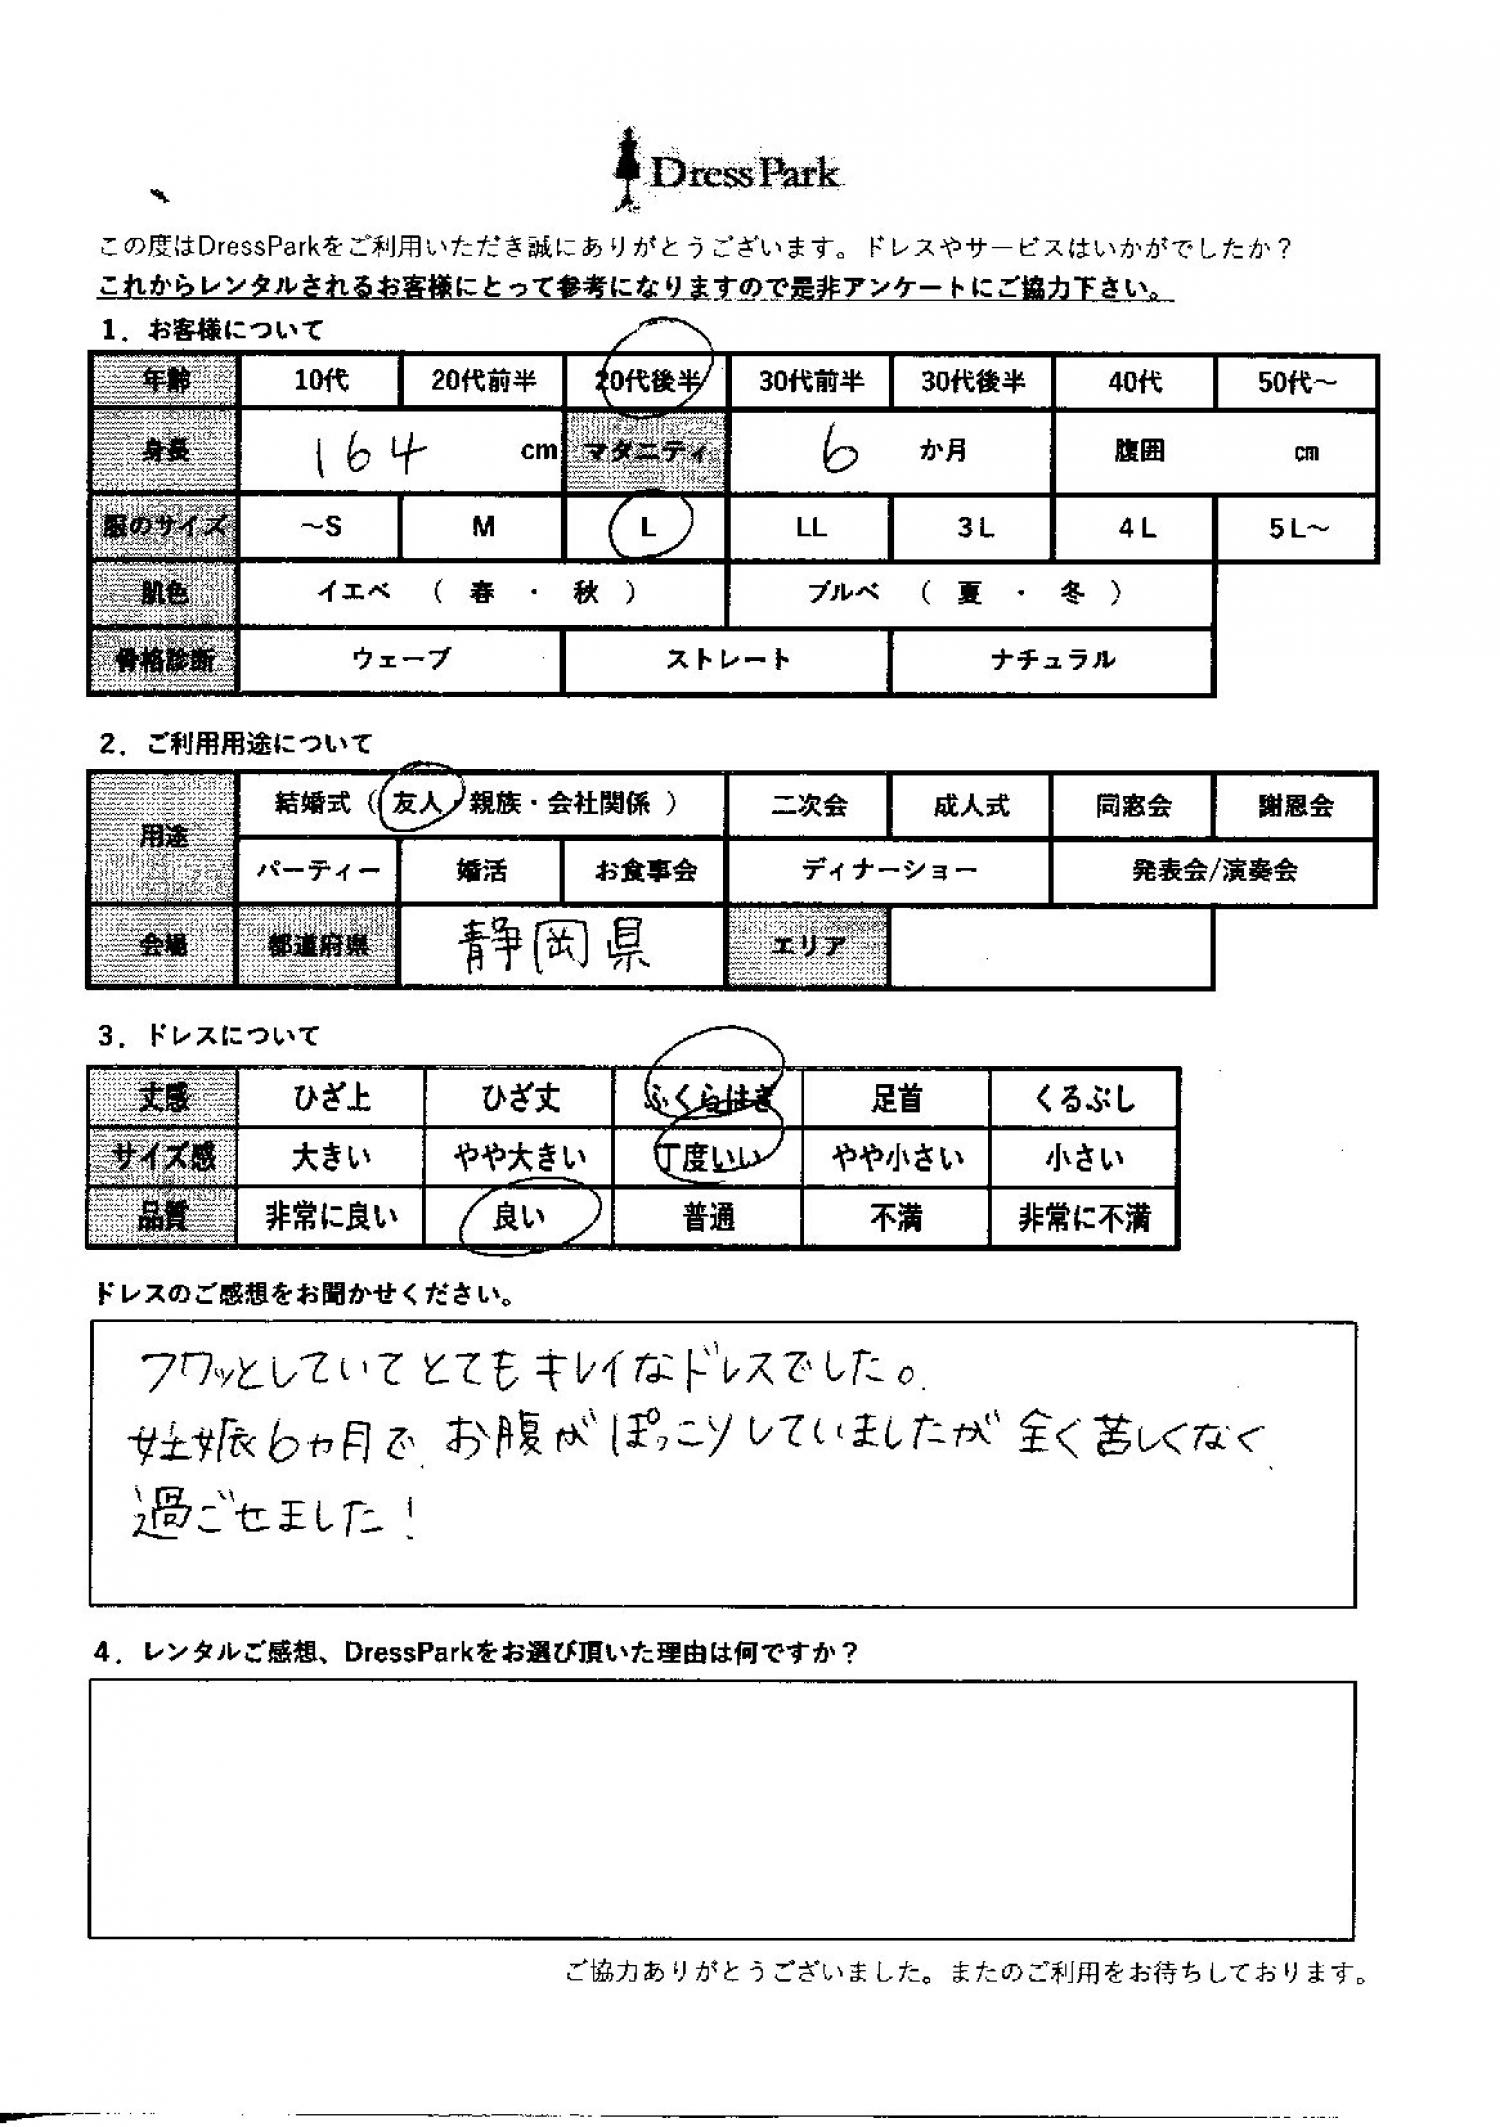 DressPark
この度はDressParkをご利用いただき誠にありがとうございます。ドレスやサービスはいかがでしたか？
これからレンタルされるお客様にとって参考になりますので是非アンケートにご協力下さい。
1．お客様について
年齢 10代 20代前半 20代後半 30代前半 30代後半 40代 50代～
身長 164 cm マタニティ 6 か月 腹囲 cm
服のサイズ ～S M L LL 3L 4L 5L～
肌色 イエベ （ 春 ・ 秋 ） ブルベ （ 夏 ・ 冬 ）
骨格診断 ウェーブ ストレート ナチュラル
2．ご利用用途について
用途 結婚式（ 友人・親族・会社関係 ） 二次会 成人式 同窓会 謝恩会
パーティー 婚活 お食事会 ディナーショー 発表会/演奏会
会場 都道府県 静岡県 エリア
3．ドレスについて
丈感 ひざ上 ひざ丈 ふくらはぎ 足首 くるぶし
サイズ感 大きい やや大きい 丁度いい やや小さい 小さい
品質 非常に良い 良い 普通 不満 非常に不満
ドレスのご感想をお聞かせください。
フワッとしていてとてもキレイなドレスでした。
妊娠6ヵ月で、お腹がぽっこりしていましたが全く苦しくなく、
過ごせました！
4．レンタルご感想、DressParkをお選び頂いた理由は何ですか？
ご協力ありがとうございました。またのご利用をお待ちしております。